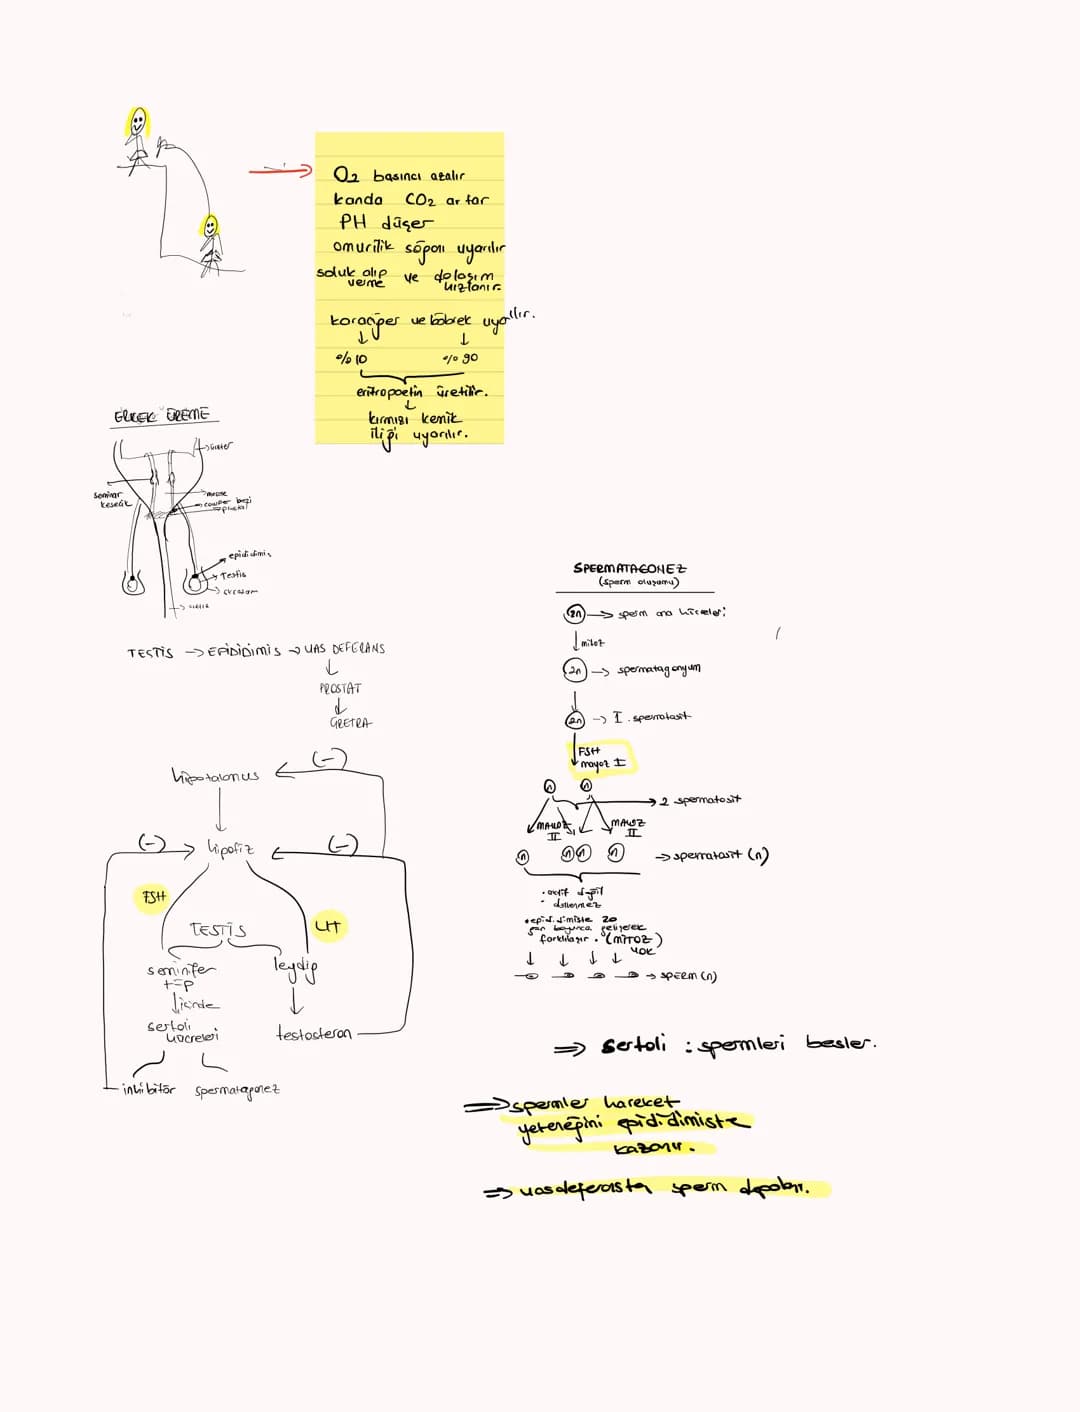 O2 basıncı azalır
kanda CO2 artar
PH düşer
omurilik soğanı uyarılır
soluk alıp verme ve dolaşım hızlanır
karaciğer ve böbrek uyarılır.
%10 %90
eritropoetin üretilir.
kırmızı kemik
iliği uyarılır.
ERKEK ÜREME
üreter
seminar
kesecik
mesane
cowper bezi
epididimis
Testis
TESTİS → EPİDİDİMİS → VAS DEFERANS
PROSTAT
ÜRETRA
(-)
hipotalamus
(-) hipofiz (-)
FSH
LH
TESTİS
seminifer
tüp
içinde
leydig
sertoli
hücreleri
testosteron
inhibitör spermatagonez
SPERMATAGONEZ
(sperm oluşumu)
2n → sperm ana hücreleri
mitoz
2n → spermatagonyum
2n → I. spermatosit
FSH
mayoz I
n n
2 spermatosit
MAYOZ II MAYOZ II
n n n n → spermatasit (n)
• aktif değil
• döllenmez
• epididimiste 20
gün boyunca gelişerek
farklılaşır. (MİTOZ)
YOK
→ SPERM (n)
⇒ Sertoli : spermleri besler.
⇒ spermler hareket
yeteneğini epididimiste
kazanır.
⇒ vasdeferasta sperm depolanır.